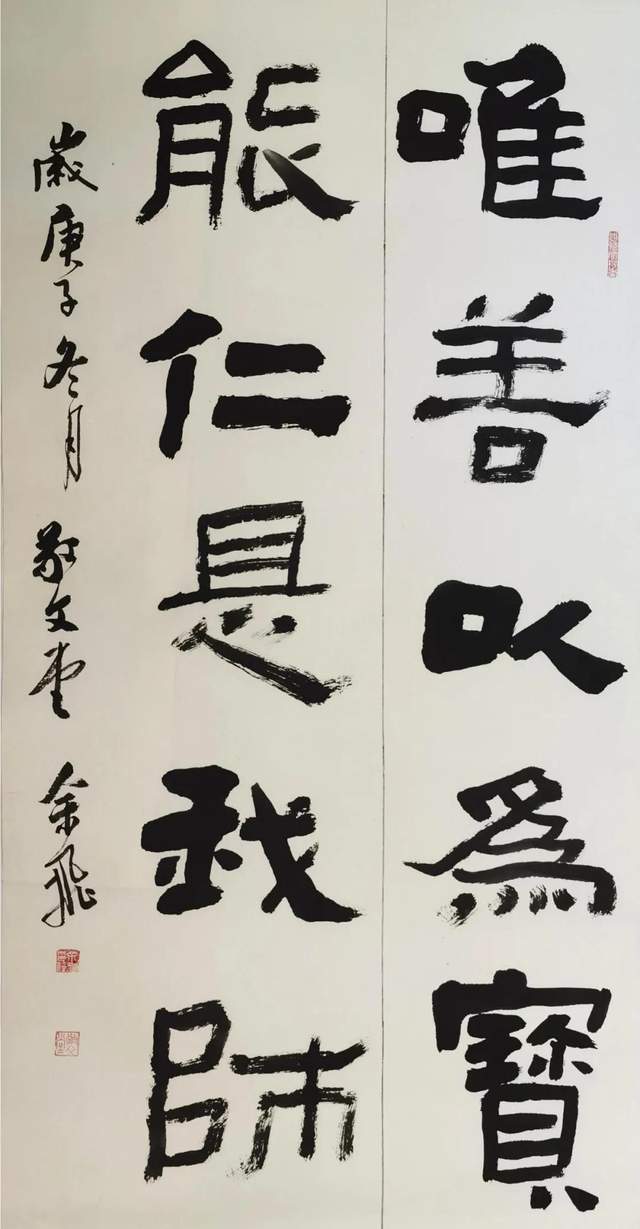 唯善以為寶
能仁是我師
歲庚子冬月敬文堂余飛